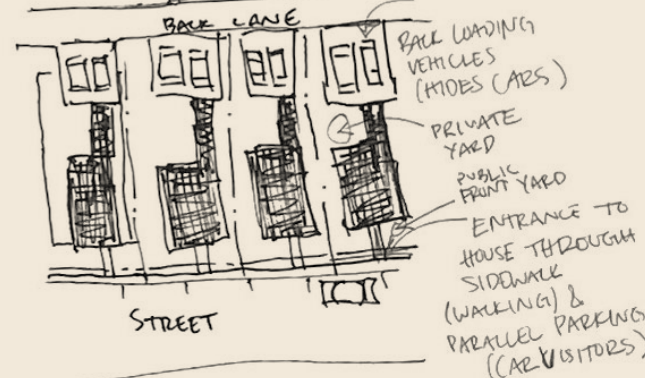 BACK LANE
BACK LOADING
VEHICLES
(HIDES CARS)
PRIVATE
YARD
PUBLIC
FRONT YARD
ENTRANCE TO
HOUSE THROUGH
SIDEWALK
(WALKING) &
PARALLEL PARKING
(CAR VISITORS)
STREET